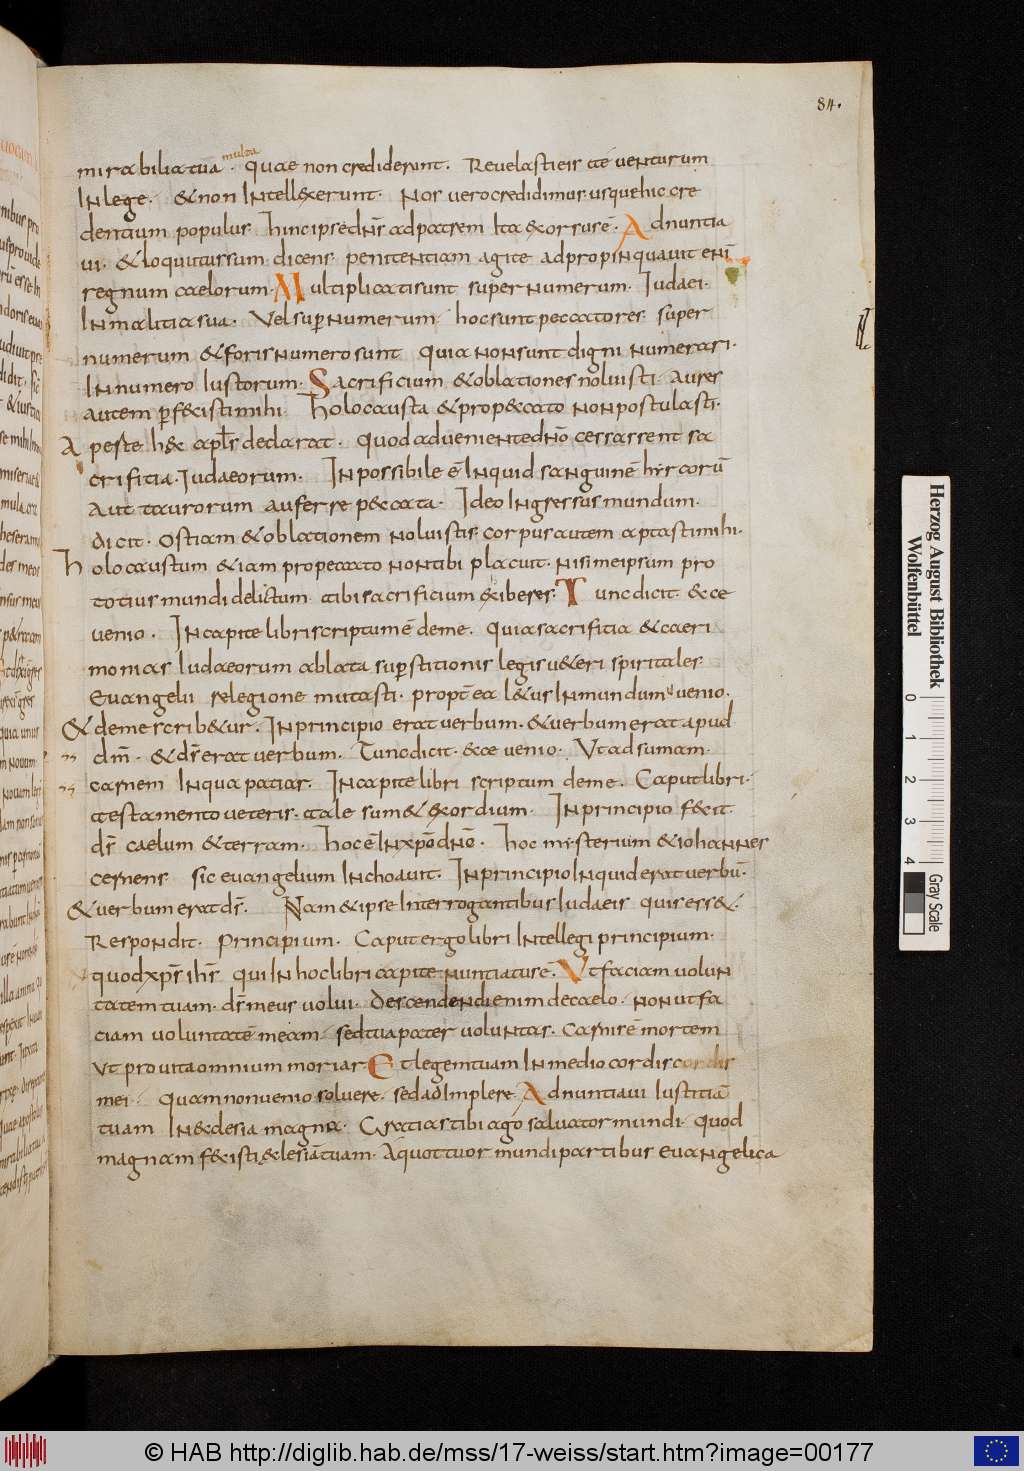 84.
mirabilia tua multa. Quae non crediderunt. Revelasti eis te venturum
In lege. & non Intell&xerunt. Nos vero credidimus. usque hic cre
dentium populus hinc ipse dn̄s ad patrem Ita exorsus ē. Adnuntia
vi. & loquitur sum dicens penitentiam agite adpropinquavit enī
regnum caelorum. Multiplicati sunt super numerum. Iudaei.
In malitia sua. Vel sup numerum hoc sunt peccatores super
numerum & foris numero sunt quia non sunt digni numerari.
In numero Iustorum. Sacrificium & oblationes noluisti. Aures
autem pf&cisti mihi. Holocausta & pro p&cato non postulasti.
Apeste h&c aplś declarat. Quod adveniente dnō cessassent sa
crifitia. Iudaeorum. Inpossibile ē Inquid sanguinē hircorū
Aut taurorum auferre p&cata. Ideo Ingressus mundum.
dicit. Ostiam & oblationem noluisti. corpus autem aptasti mihi.
Holocaustum & iam pro peccato non tibi placuit. nisi me ipsum pro
totius mundi delictum tibi sacrificium &iberes. Tunc dicit. &ce
venio. In capite libri scriptum ē de me. Quia sacrifitia & caeri
monias Iudaeorum ablata sup̄stitionis legis v&eri spiritales
Evangelii relegione mutasti. propt̄ea l&us In mundum venio.
& de me scrib&ur. In principio erat verbum. & verbum erat apud
dm̄. & ds̄ erat verbum. Tunc dicit. &ce venio. Ut adsumam.
carnem In qua patiar. In capite libri scriptum de me. Caput libri.
testamento veteris. tale sum& &xordium. In principio f&it
ds̄ caelum & terram. hoc ē In xpō dnō. hoc misterium & iohannes
cernens sic evangelium Inchoavit. In principio Inquid erat verbū.
& verbum erat ds̄. Nam & ipse Interrogantibus Iudaeis quis ess&.
Respondit. Principium. Caput ergo libri Intellegi principium.
quod xps̄ ihs̄ qui In hoc libri capite nuntiatus ē. Ut faciam volun
tatem tuam. ds̄ meus volui. descendendi enim de caelo. non ut fa
ciam voluntatē meam. sed tua pater voluntas. Carnis ē mortem
ut pro vita omnium moriar Et legem tuam In medio cordis cordis
mei. Quam non venio solvere. sed adimplere. Adnuntiavi Iustitiā
tuam In &clesia magna. Gratias tibi ago salvator mundi. quod
magnam f&isti &clesiā tuam. A quottuor mundi partibus evangelica
Herzog August Bibliothek
Wolfenbüttel
0 1 2 3 4
Gray Scale
© HAB http://diglib.hab.de/mss/17-weiss/start.htm?image=00177